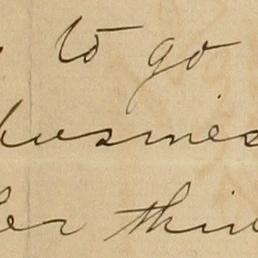 to go
busines
ler thin